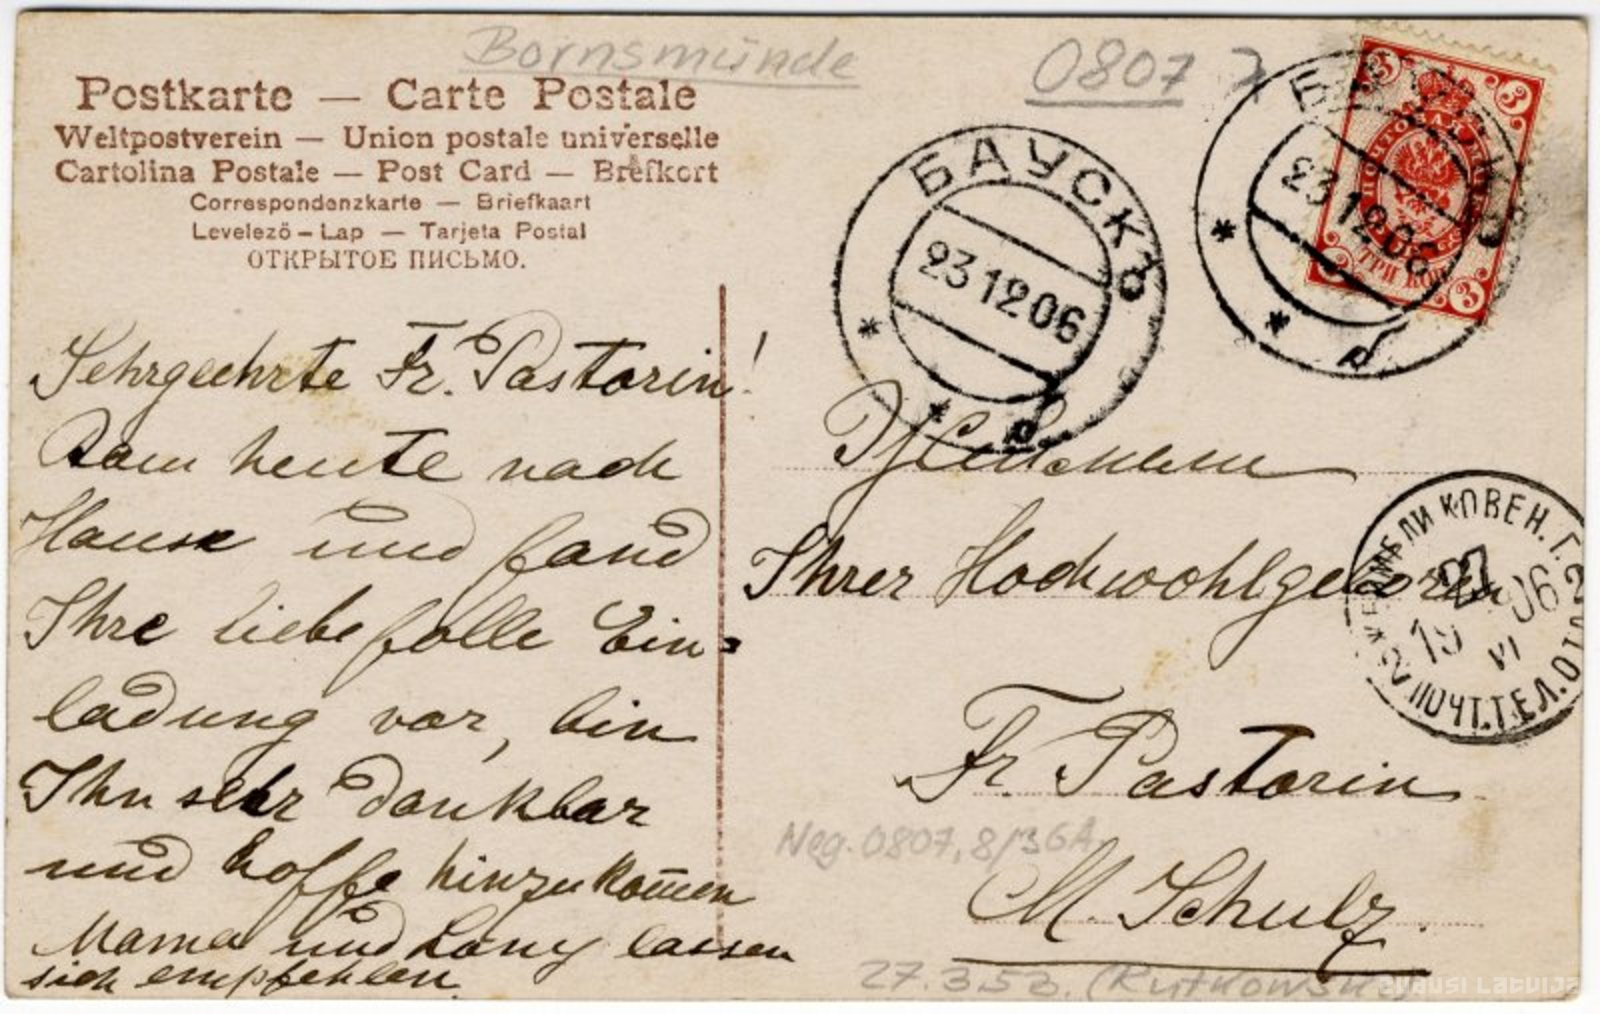 Bornsmünde
0807 7
Postkarte — Carte Postale
Weltpostverein — Union postale universelle
Cartolina Postale — Post Card — Brefkort
Correspondenzkarte — Briefkaart
Levelező-Lap — Tarjeta Postal
ОТКРЫТОЕ ПИСЬМО.
БАУСКЪ
23 12 06
БАУСКЪ
23 12 06
3 3
ТРИ КОП
3 3
Sehrgeehrte Fr. Pastorin!
Kam heute nach
Hause und fand
Ihre liebefolle Ein-
ladung vor, bin
Ihn sehr dankbar
und hoffe hinzukom̅en
Mama und Lony lassen
sich empfehlen.
Ihrer Hochwohlgeboren
Fr. Pastorin
M. Schulz.
КОВЕН. Г.
19 VI 06
ПОЧТ.ТЕЛ.ОТД
Neg. 0807, 8/36A
27.3.53. (Rutkowski)
zudusi Latvija